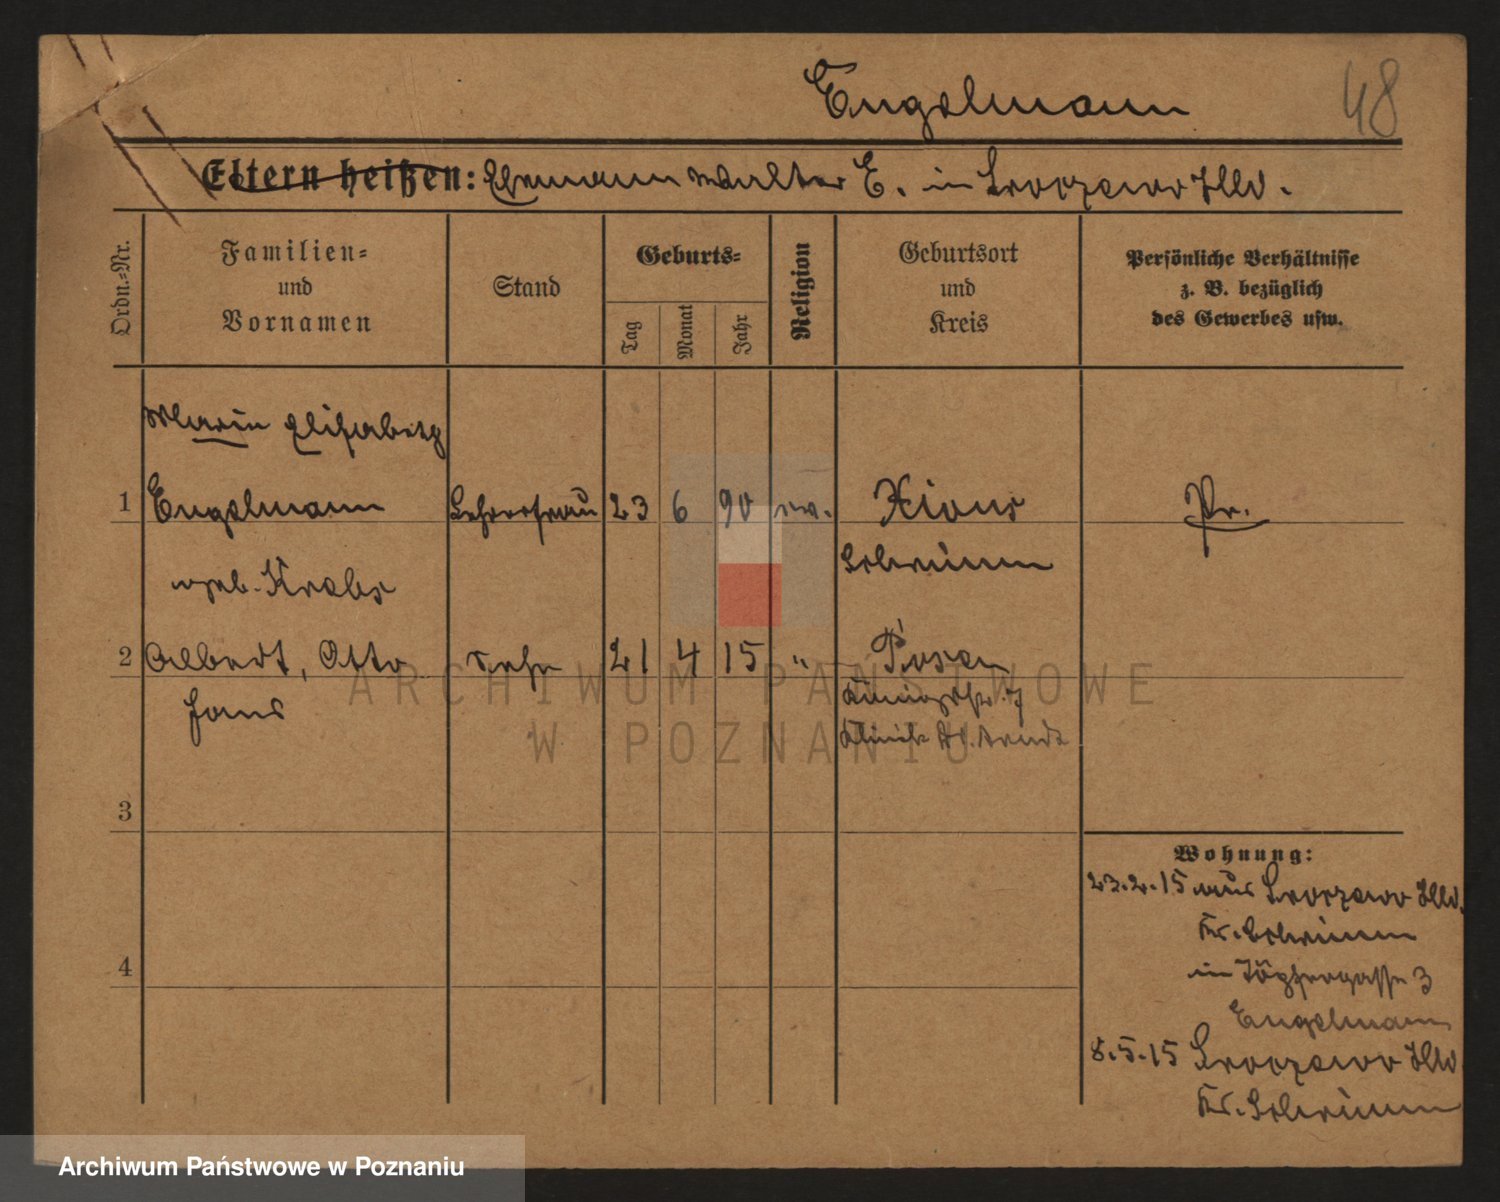 Engelmann
48
Eltern heißen: Ehemann Walter E. in
Ordn.-Nr.
Familien-
und
Vornamen
Stand
Geburts-
Tag
Monat
Jahr
Religion
Geburtsort
und
Kreis
Persönliche Verhältnisse
z. B. bezüglich
des Gewerbes usw.
Maria Elisabeth
1 Engelmann Lehrersfrau 23 6 90 ev. Xions Pr.
Schrimm
geb. Krebs
2 Albert, Otto Sohn 21 4 15 " Posen
Hans
Königstr.
Klinik Dr.
3
4
Wohnung:
23.2.15 aus
Kr. Schrimm
in Töpfergasse 3
Engelmann
8.5.15
Kr. Schrimm
ARCHIWUM PAŃSTWOWE
W POZNANIU
Archiwum Państwowe w Poznaniu